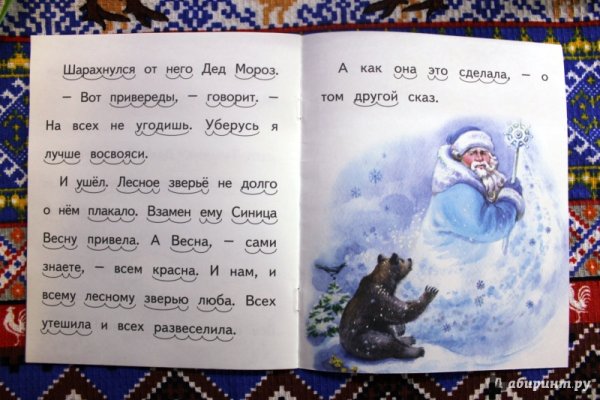 Шарахнулся от него Дед Мороз.
– Вот привереды, – говорит. –
На всех не угодишь. Уберусь я
лучше восвояси.
И ушёл. Лесное зверьё не долго
о нём плакало. Взамен ему Синица
Весну привела. А Весна, – сами
знаете, – всем красна. И нам, и
всему лесному зверью люба. Всех
утешила и всех развеселила.
А как она это сделала, – о
том другой сказ.
абиринт.ру